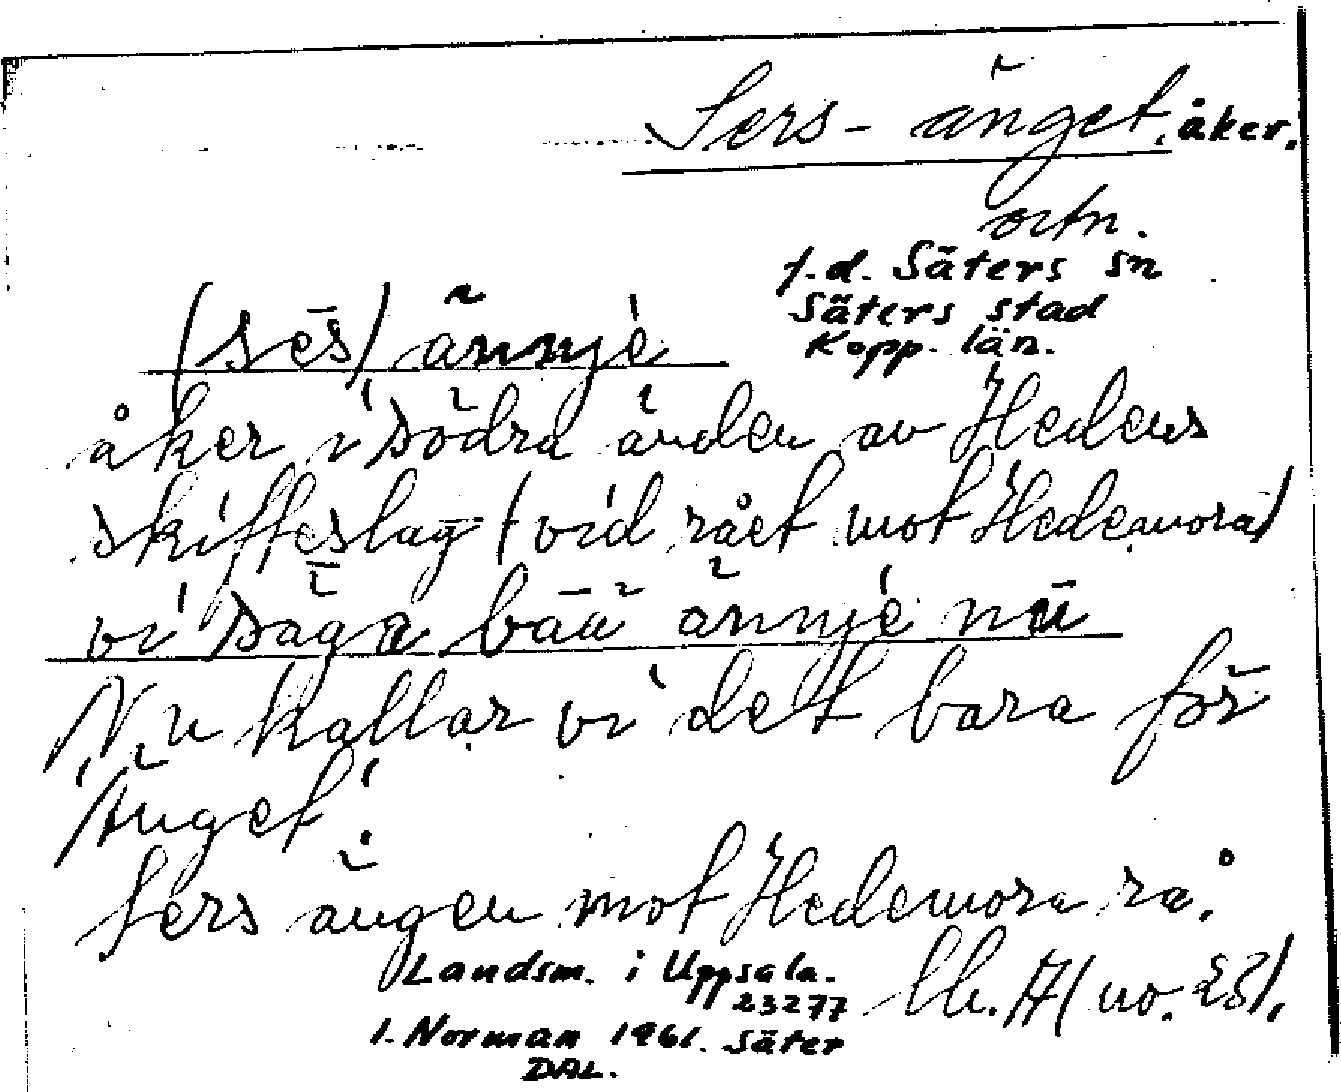 Sers-änget, åker.
ortn.
f.d. Säters sn
Säters stad
Kopp. län.
(sēs) ännjé
åker i södra änden av Hedens
skifteslag (vid rået mot Hedemora)
vi säga bāä ännjé nū
Nu kallar vi det bara för
Änget!
Sers ängen mot Hedemora rå.
Landsm. i Uppsala.
23277
lh. A( no.
I. Norman 1961. Säter
DAL.